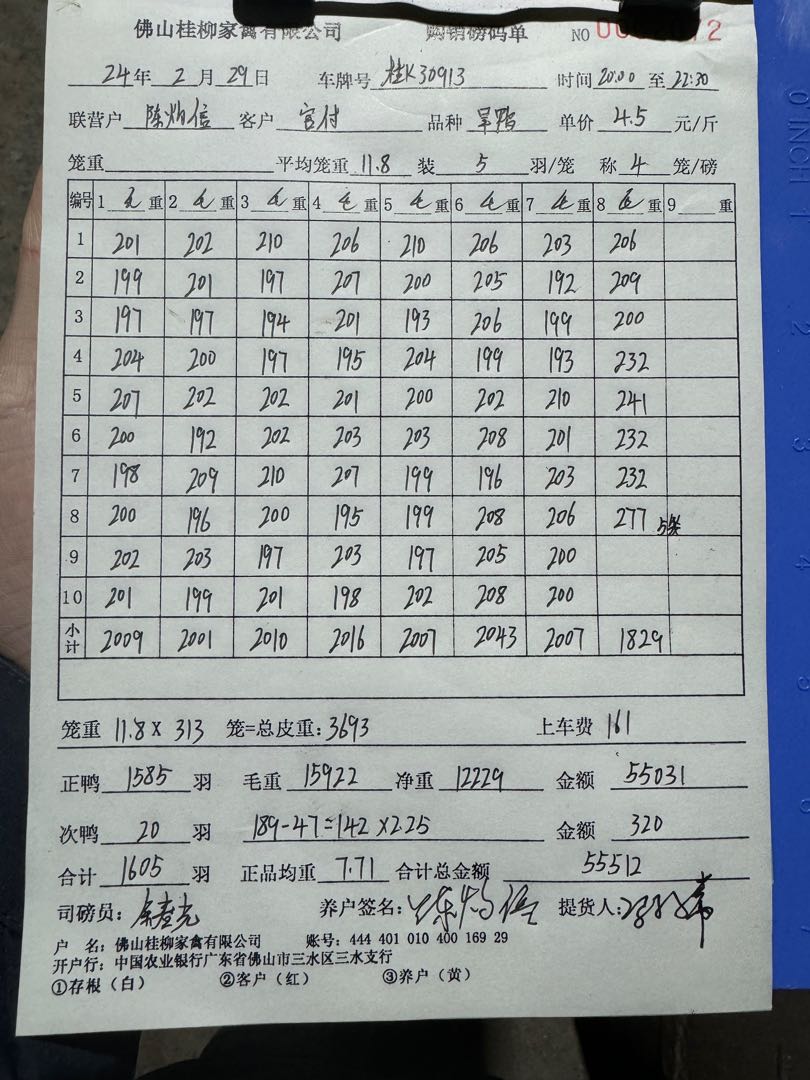 佛山桂柳家禽有限公司 购销磅码单 NO
24年 2月 29日 车牌号 桂K30913 时间 20:00 至 22:30
联营户 陈灼信 客户 宫付 品种 旱鸭 单价 4.5 元/斤
笼重 平均笼重 11.8 装 5 羽/笼 称 4 笼/磅
编号 1 毛 重 2 毛 重 3 毛 重 4 毛 重 5 毛 重 6 毛 重 7 毛 重 8 毛 重 9 重
1 201 202 210 206 210 206 203 206
2 199 201 197 207 200 205 192 209
3 197 197 194 201 193 206 199 200
4 204 200 197 195 204 199 193 232
5 207 202 202 201 200 202 210 241
6 200 192 202 203 203 208 201 232
7 198 209 210 207 199 196 203 232
8 200 196 200 195 199 208 206 277 5笼
9 202 203 197 203 197 205 200
10 201 199 201 198 202 208 200
小计 2009 2001 2010 2016 2007 2043 2007 1829
笼重 11.8 X 313 笼=总皮重: 3693 上车费 161
正鸭 1585 羽 毛重 15922 净重 12229 金额 55031
次鸭 20 羽 189-47=142 X2.25 金额 320
合计 1605 羽 正品均重 7.71 合计总金额 55512
司磅员: 养户签名: 陈灼信 提货人:
户 名: 佛山桂柳家禽有限公司 账号: 444 401 010 400 169 29
开户行: 中国农业银行广东省佛山市三水区三水支行
①存根(白) ②客户(红) ③养户(黄)
0 INCH 1
2
3
4
5